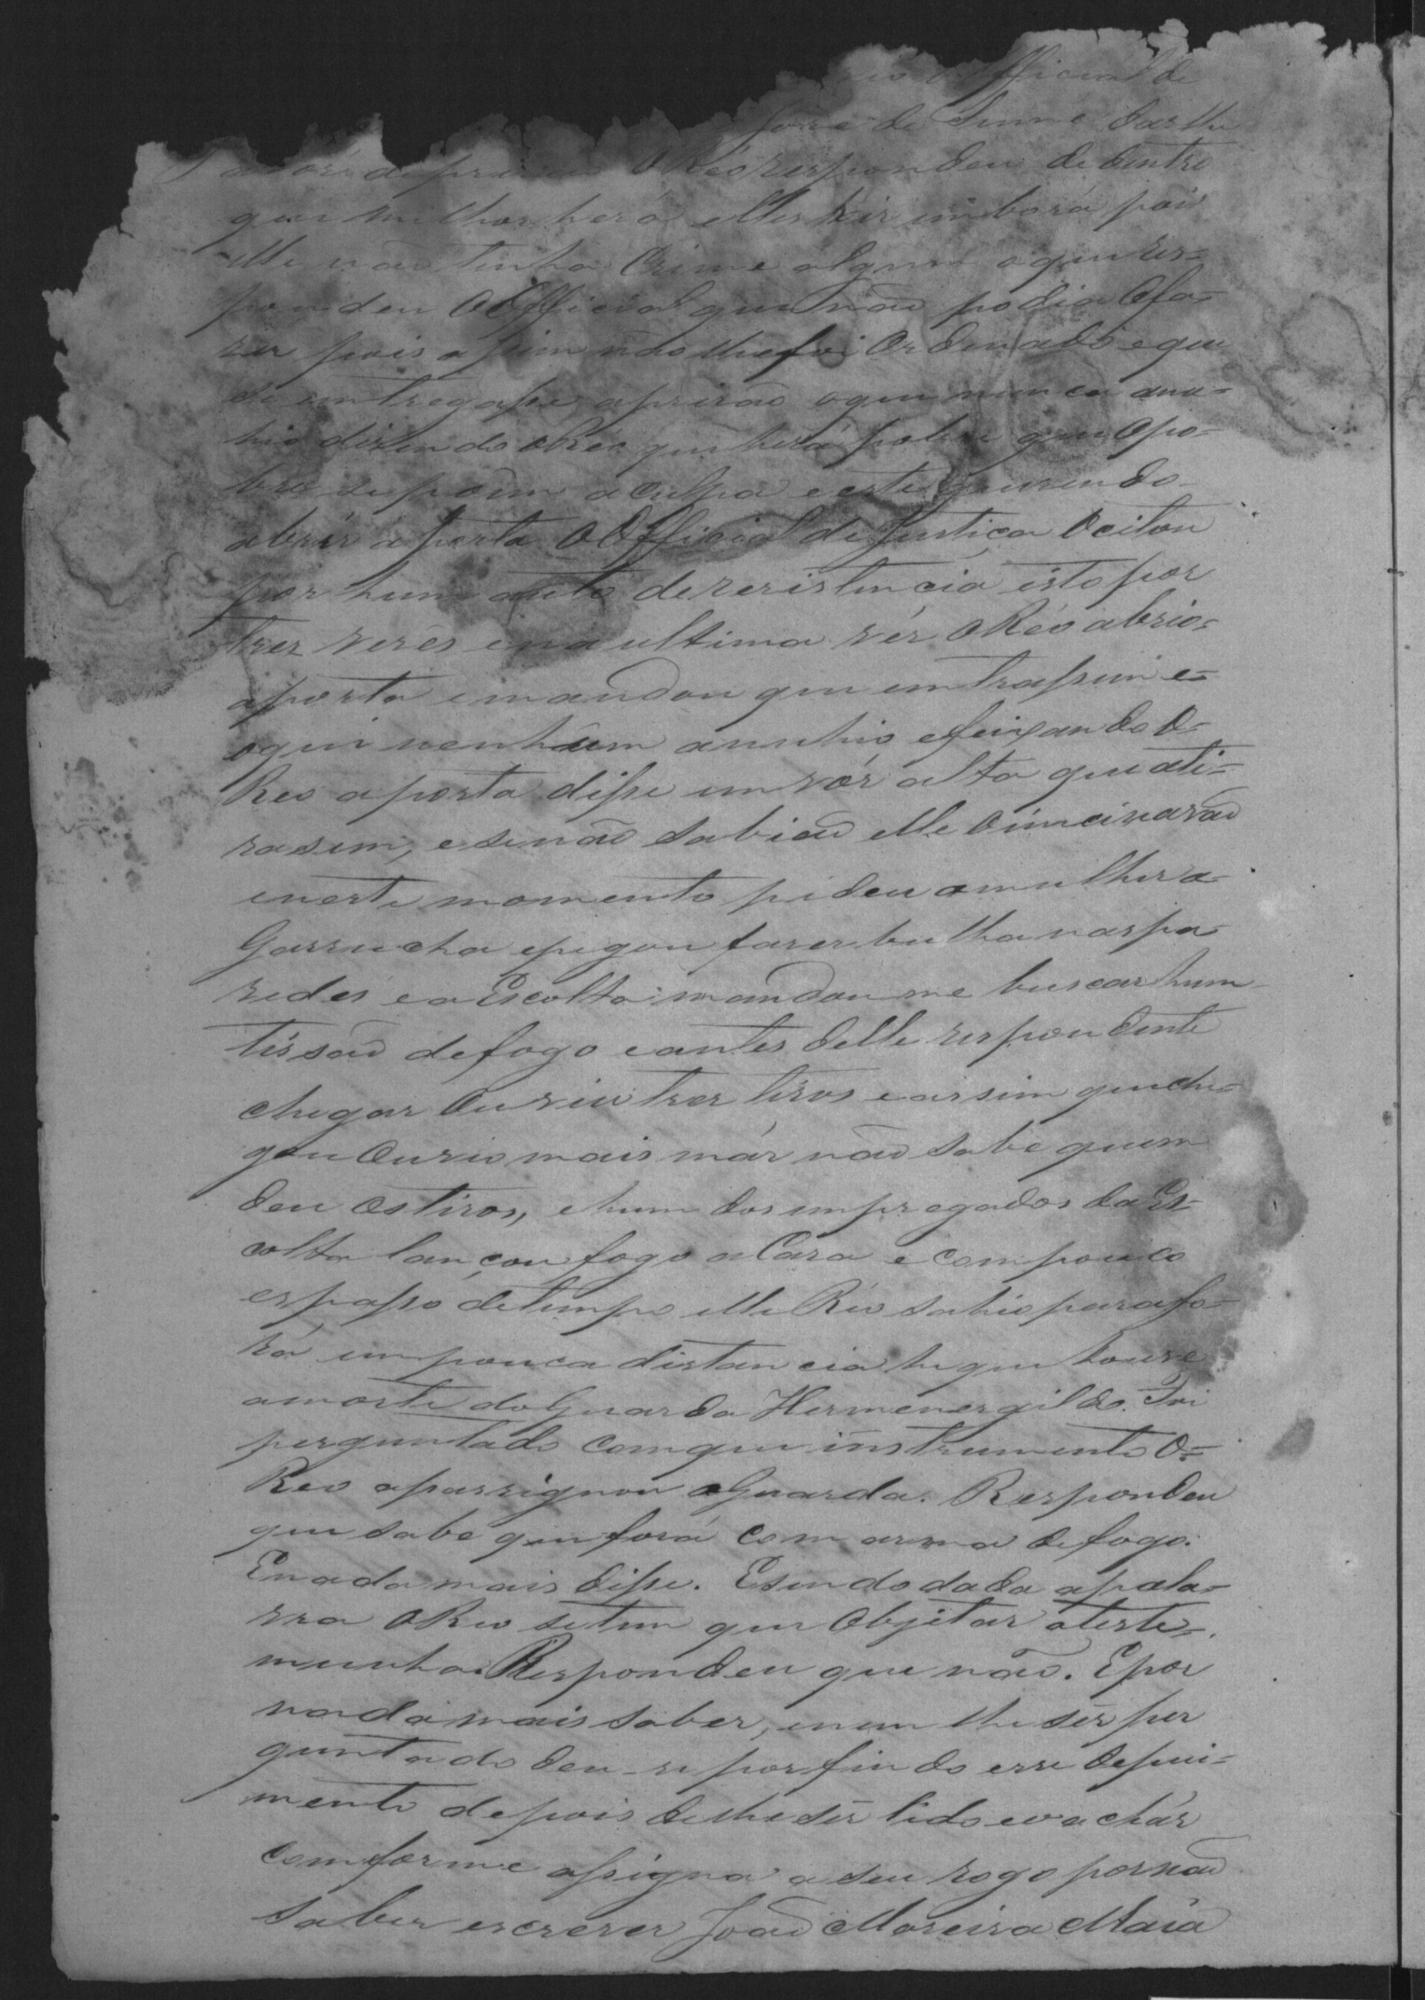 Official de
fora de
vóz de prizão O Réo respondeu de dentro
que milhor hera elles hir imbora pois
elle não tinha Crime algum o que res=
pondeu O Official que não podia Ofa=
zer pois assim não lhe foi Ordenado e que
se entregasse aprizão o que nunca anu=
hio dizendo o Réo que hera pobre e que Opo=
bre se poem a culpa e este querendo
abrir aporta O Official de Justiça Ocitou
por hum auto de rezistencia isto por
trez vezes e na ultima véz O Réo abrio=
aporta e mandou que entrassem e=
o que nenhum anuhio e feixando O=
Reo aporta disse em vóz alta que ati=
rasem, e se não sabião elle Oincinarão
e neste momento pideu amulher a
Garrucha e pegou fazer bulha nas pa
redes e a Escolta mandou me buscar hum
tissão de fogo e antes delle respondente
chegar Ouviu trez tiros e assim que che=
gou Ouvio mais máz não sabe quem
deu Ostiros, e hum dos empregados da Es=
colta lançou fogo a Caza e com pouco
espasso de tempo elle Réo sahio para fo=
ra em pouca distancia he que houve
amorte do Guarda Hermenergildo. Foi
perguntado com que instrumento O=
Reo apassignou o Guarda. Respondeu
que sabe que fora com arma de fogo.
E nada mais disse. E sendo dada apala=
vra O Reo se tem que Objetar a teste=
munha. Respondeu que não. E por
nada mais saber, e nem lhe sêr per
guntado deu-se por findo esse depui=
mento depois de lhe sêr lido e o achár
comforme assigna a seu rogo por não
saber escrever João Moreira Maia